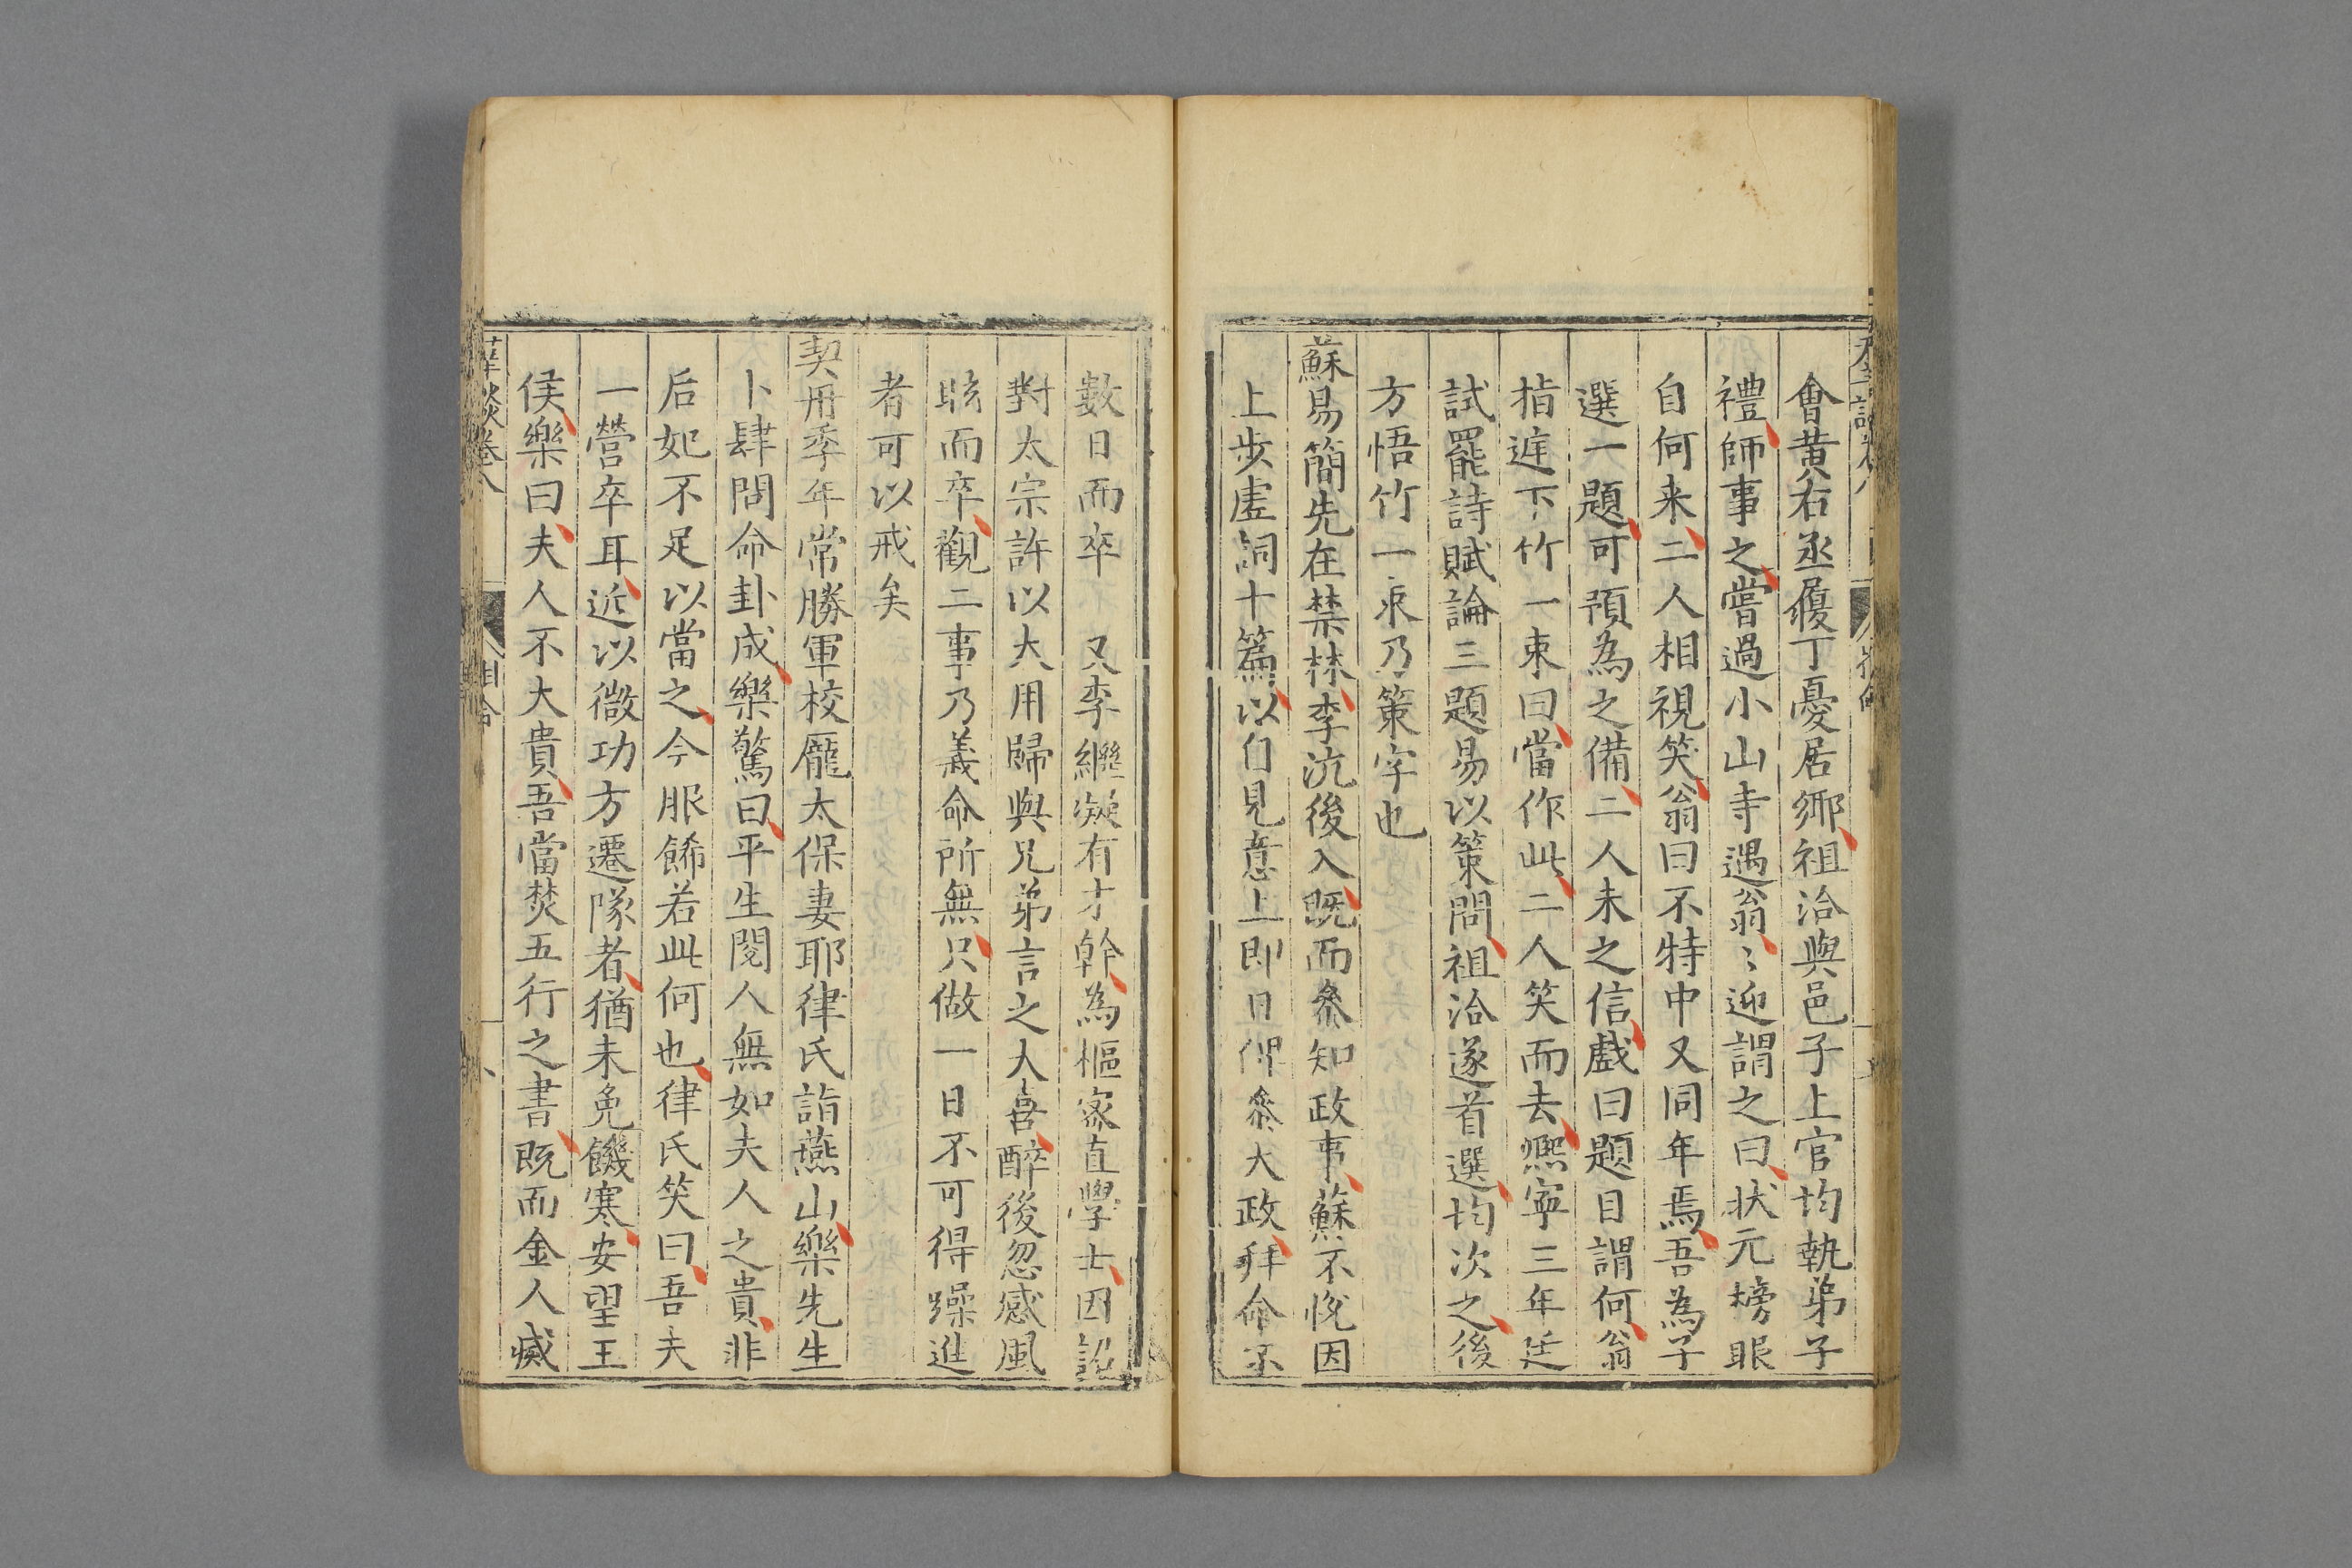 會黄右丞履丁憂居鄉祖洽與邑子上官均執弟子
禮師事之嘗過小山寺遇翁〻迎謂之曰狀元榜眼
自何来二人相視笑翁曰不特中又同年焉吾為子
選一題可預為之備二人未之信戲曰題目謂何翁
指庭下竹一束曰當作此二人笑而去熈寧三年廷
試罷詩賦論三題易以策問祖洽遂首選均次之後
方悟竹一束乃策字也
蘇易簡先在禁林李沆後入既而叅知政事蘇不悅因
上步虛詞十篇以自見意上即日俾叅大政拜命不
數日而卒 又李繼凝有才幹為樞密直學士因詔
對太宗許以大用歸與兄弟言之大喜醉後忽感風
眩而卒觀二事乃義命所無只做一日不可得躁進
者可以戒矣
契丹季年常勝軍校龐太保妻耶律氏詣燕山樂先生
卜肆問命卦成樂驚曰平生閱人無如夫人之貴非
后妃不足以當之今服餙若此何也律氏笑曰吾夫
一營卒耳近以微功方遷隊者猶未免饑寒安望王
侯樂曰夫人不大貴吾當焚五行之書既而金人滅
談卷八